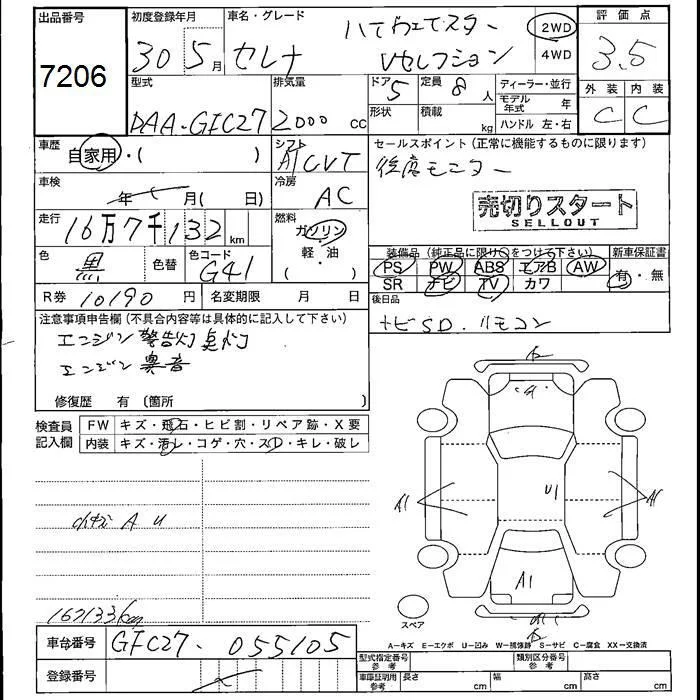 出品番号 初度登録年月 車名・グレード 評価点
7206 30 5月 セレナ ハイウェイスター Vセレクション 2WD 4WD 3.5
型式 排気量 ドア 定員 ディーラー・並行 外装 内装
DAA-GFC27 2000 cc 5 8人 モデル年式 年 C C
形状 積載 kg ハンドル 左・右
車歴 シフト セールスポイント(正常に機能するものに限ります)
自家用・( ) A CVT 後席モニター
車検 冷房
年 月( 日) AC 売切りスタート
SELLOUT
走行 燃料
16万7千132km ガソリン
軽・油
( )
色 色替 色コード 装備品(純正品に限け○をつけて下さい) 新車保証書
黒 G41 PS PW ABS エアB AW 有・無
SR ナビ TV カワ
R券 10190円 名変期限 月 日 後日品
注意事項申告欄(不具合内容等は具体的に記入して下さい) ナビSD.リモコン
エンジン警告灯点灯
エンジン異音
修復歴 有(箇所 )
検査員記入欄 FW キズ・飛石・ヒビ割・リペア跡・X要
内装 キズ・汚レ・コゲ・穴・スレ・キレ・破レ
A U
A1 U1 A1
A1
167133km
スペア
A=キズ E=エクボ U=凹み W=補修跡 S=サビ C=腐食 XX=交換済
車台番号 GFC27-055105
型式指定番号 参考 類別区分番号 参考
登録番号 車庫証明用 参考 長さ cm 幅 cm 高さ cm